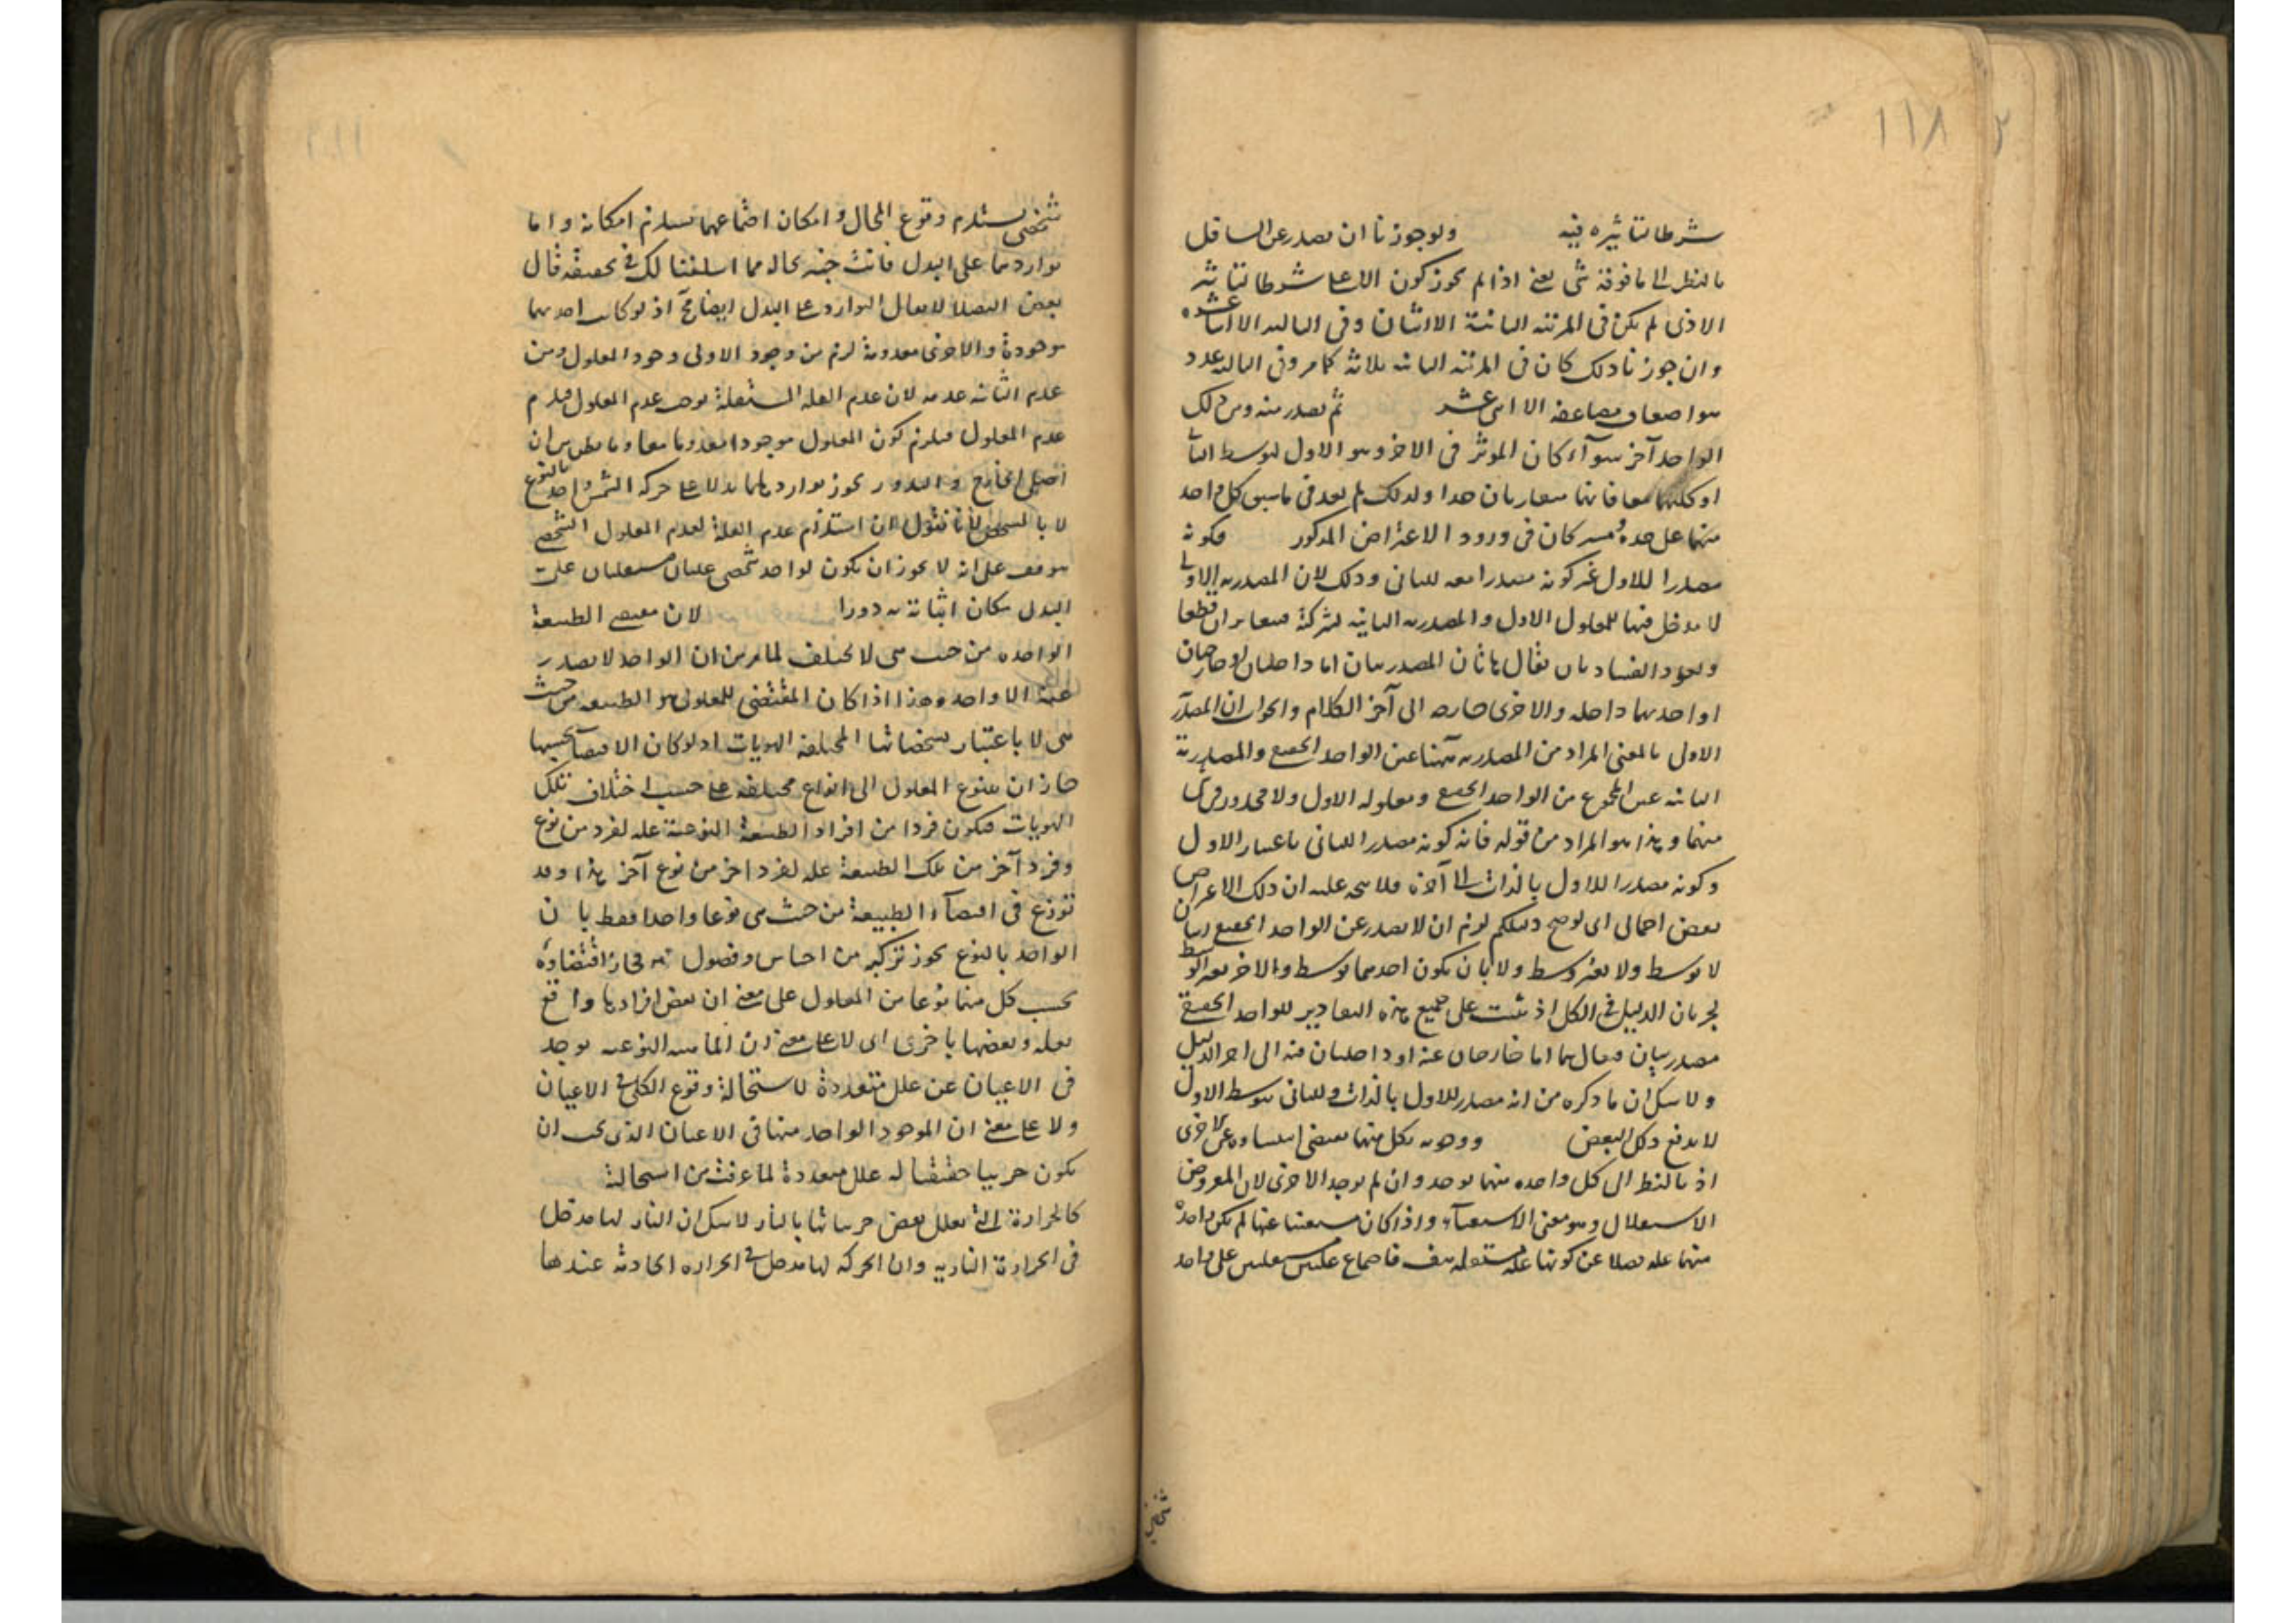 ١١٨ ٢
شرطا لتاثيره فيه ولو جوزنا ان يصدر عن السافل
بالنظر الى ما فوقه شى يعنى اذا لم يجوز كون الاعلى شرطا لتاثير
الادنى لم يكن فى المرتبه الثانية الا اثنان وفى الثالثه الا اثنا عشر
وان جوزنا ذلك كان فى المرتبه الثانيه ثلاثة كما مر وفى الثالثه عدد
الاثنى عشر ثم يصدر منه ومن ذلك
الواحد آخر سوآء كان الموثر فى الاخر وهو الاول لتوسط الثانى
او كليهما معا فانهما متغايران جدا ولذلك لم يعد فى ما سبق كل واحد
منهما على حده فى ورود الاعتراض المذكور فكونه
مصدرا للاول غير كونه مصدرا معه للثانى وذلك لان المصدريه الاولى
لا مدخل فيها للمعلول الاول والمصدريه الثانيه لشركة متغايران قطعا
ويعود الفساد بان يقال هاتان المصدريتان اما داخلتان او خارجتان
او احديهما داخله والاخرى خارجه الى آخر الكلام والجواب ان المصدرية
الاولى بالمعنى المراد من المصدريه هنا عين الواحد الحقيقى والمصدرية
الثانيه عين المجموع من الواحد الحقيقى ومعلوله الاول ولا محذور فى شى
منهما وهذا هو المراد من قوله فانه كونه مصدرا للثانى باعتبار الاول
وكونه مصدرا للاول بالذات الى آخره فلا يتجه عليه ان ذلك الاعتراض
نقض اجمالى اى لو صح دليلكم لزم ان لا يصدر عن الواحد الحقيقى اثنان
لا بوسط ولا بغير وسط ولا بان يكون احدهما بوسط والاخر بغير الوسط
لجريان الدليل فى الكل اذ يثبت على جميع هذه التقادير للواحد الحقيقى
مصدريتان فيقال هما اما خارجتان عنه او داخلتان فيه الى آخر الدليل
ولا شك ان ما ذكره من انه مصدر للاول بالذات وللثانى بتوسط الاول
لا يدفع ذلك النقض ووجوبه بكل منهما يقتضى استغناءه عن الاخرى
اذ بالنظر الى كل واحده منهما يوجد وان لم يوجد الاخرى لان المفروض
الاستقلال وهو معنى الاستغناء واذا كان مستغنيا عنها لم يكن واحدة
منهما علة فضلا عن كونها علة مستقلة هف فاجتماع علتين مستقلتين على واحد
شخصى
شخصى يستلزم وقوع المحال وامكان اجتماعهما يستلزم امكانه واما
تواردهما على البدل فانت خبير بحاله مما اسلفنا لك فى تحقيقه قال
بعض الفضلا لا يقال التوارد على البدل ايضا مح اذ لو كانت احديهما
موجودة والاخرى معدومة لزم من وجود الاولى وجود المعلول ومن
عدم الثانيه عدمه لان عدم العله المستقلة يوجب عدم المعلول
عدم المعلول فيلزم كون المعلول موجودا معدوما معا وما يظن من ان
يجوز تواردهما بدلا على حركة الشمس واحد بالنوع
لا بالشخص لانا نقول ان استلزام عدم العلة لعدم المعلول الشخصى
موقوف على انه لا يجوز ان يكون لواحد شخصى علتان مستقلتان على
البدل فكان اثباته به دورا لان مقتضى الطبيعة
الواحده من حيث هى لا يختلف لما مر من ان الواحد لا يصدر
عنه الا واحد وهذا اذا كان المقتضى للمعلول هو الطبيعه من حيث
هى لا باعتبار تشخصاتها المختلفة الهويات اذ لو كان الاقتضآء بحسبها
جاز ان يتنوع المعلول الى انواع مختلفه على حسب اختلاف تلك
الهويات فيكون فردا من افراد الطبيعة النوعية علة لفرد من نوع
وفرد آخر من تلك الطبيعة علة لفرد آخر من نوع آخر هذا وقد
نوزع فى اقتضآء الطبيعة من حيث هى نوعا واحدا فقط بان
الواحد بالنوع يجوز تركبه من اجناس وفصول فجاز اقتضاؤه
بحسب كل منها نوعا من المعلول على معنى ان بعض افرادها واقع
بعلة وبعضها باخرى اى لا على معنى ان الماهيه النوعيه توجد
فى الاعيان عن علل متعددة لاستحالة وقوع الكلى فى الاعيان
ولا على معنى ان الموجود الواحد منها فى الاعيان الذى يجب ان
يكون جزئيا حقيقيا له علل متعددة لما عرفت من استحالة
كالحرارة التى تعلل بعض جزئياتها بالنار لا شك ان النار لها مدخل
فى الحرارة الناريه وان الحركه لها مدخل فى الحراره الحادثه عندها